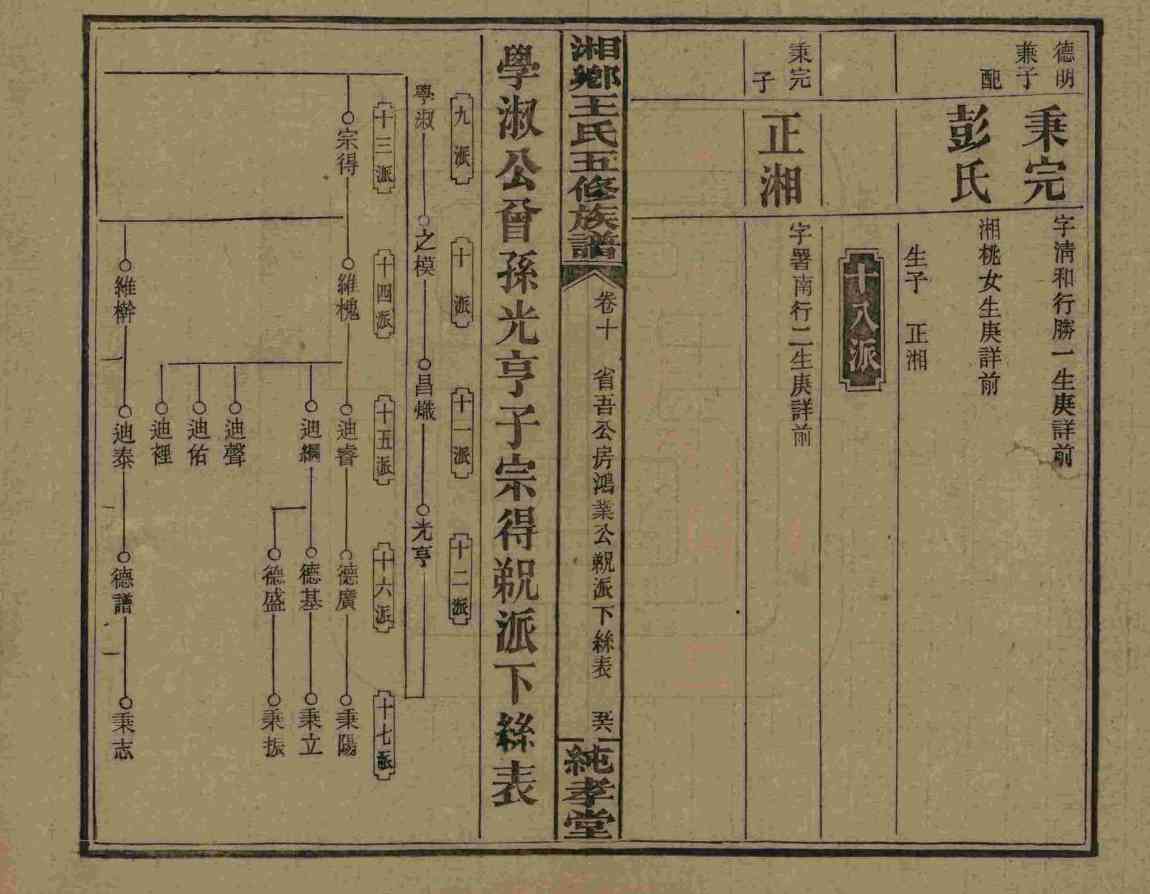 德明
兼子
秉完
字淸和行勝一生庚詳前
配
彭氏
湘桃女生庚詳前
生子 正湘
十八派
秉完
子
正湘
字署南行二生庚詳前
湘鄉王氏五修族譜
卷十 省吾公房鴻業公覣派下絲表
純孝堂
學淑公曾孫光亨子宗得覣派下絲表
九派
十派
十一派
十二派
學淑
之模
昌熾
光亨
十三派
十四派
十五派
十六派
十七派
宗得
維槐
迪睿
德廣
秉陽
迪綱
德基
秉立
德盛
秉振
迪聲
迪佑
迪禋
維幹
迪泰
德譜
秉志